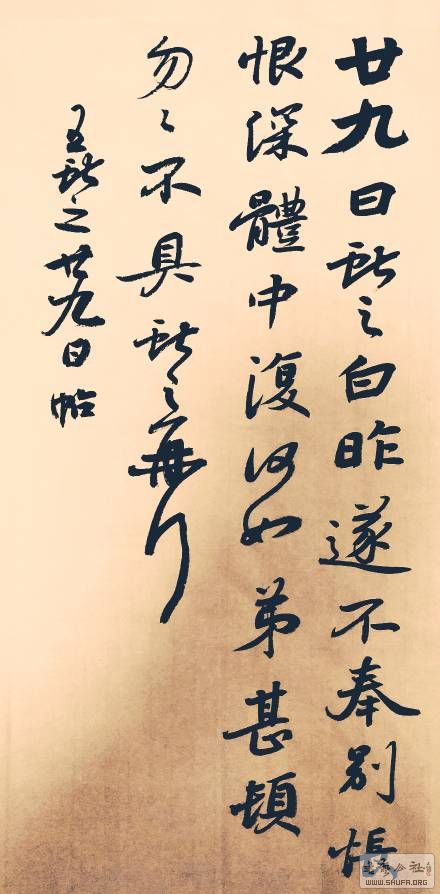 廿九日獻之白昨遂不奉別悵
恨深體中復何如弟甚頓
勿〻不具獻之再拜
王獻之廿九日帖
WWW.SHUFA.ORG